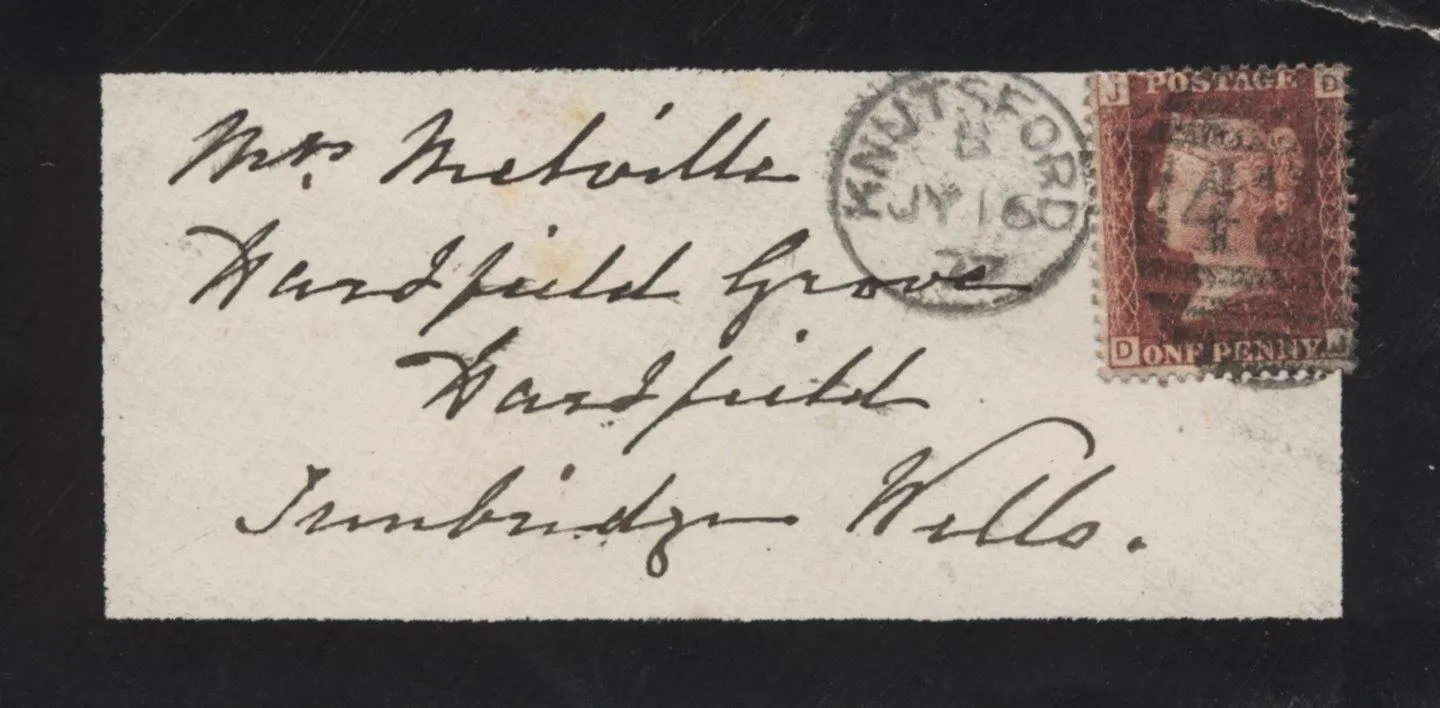 Mrs. Melville
Hardfield Grove
Hardfield
Tunbridge Wells.
KNUTSFORD
B
JY 16
77
J POSTAGE D
D ONE PENNY J